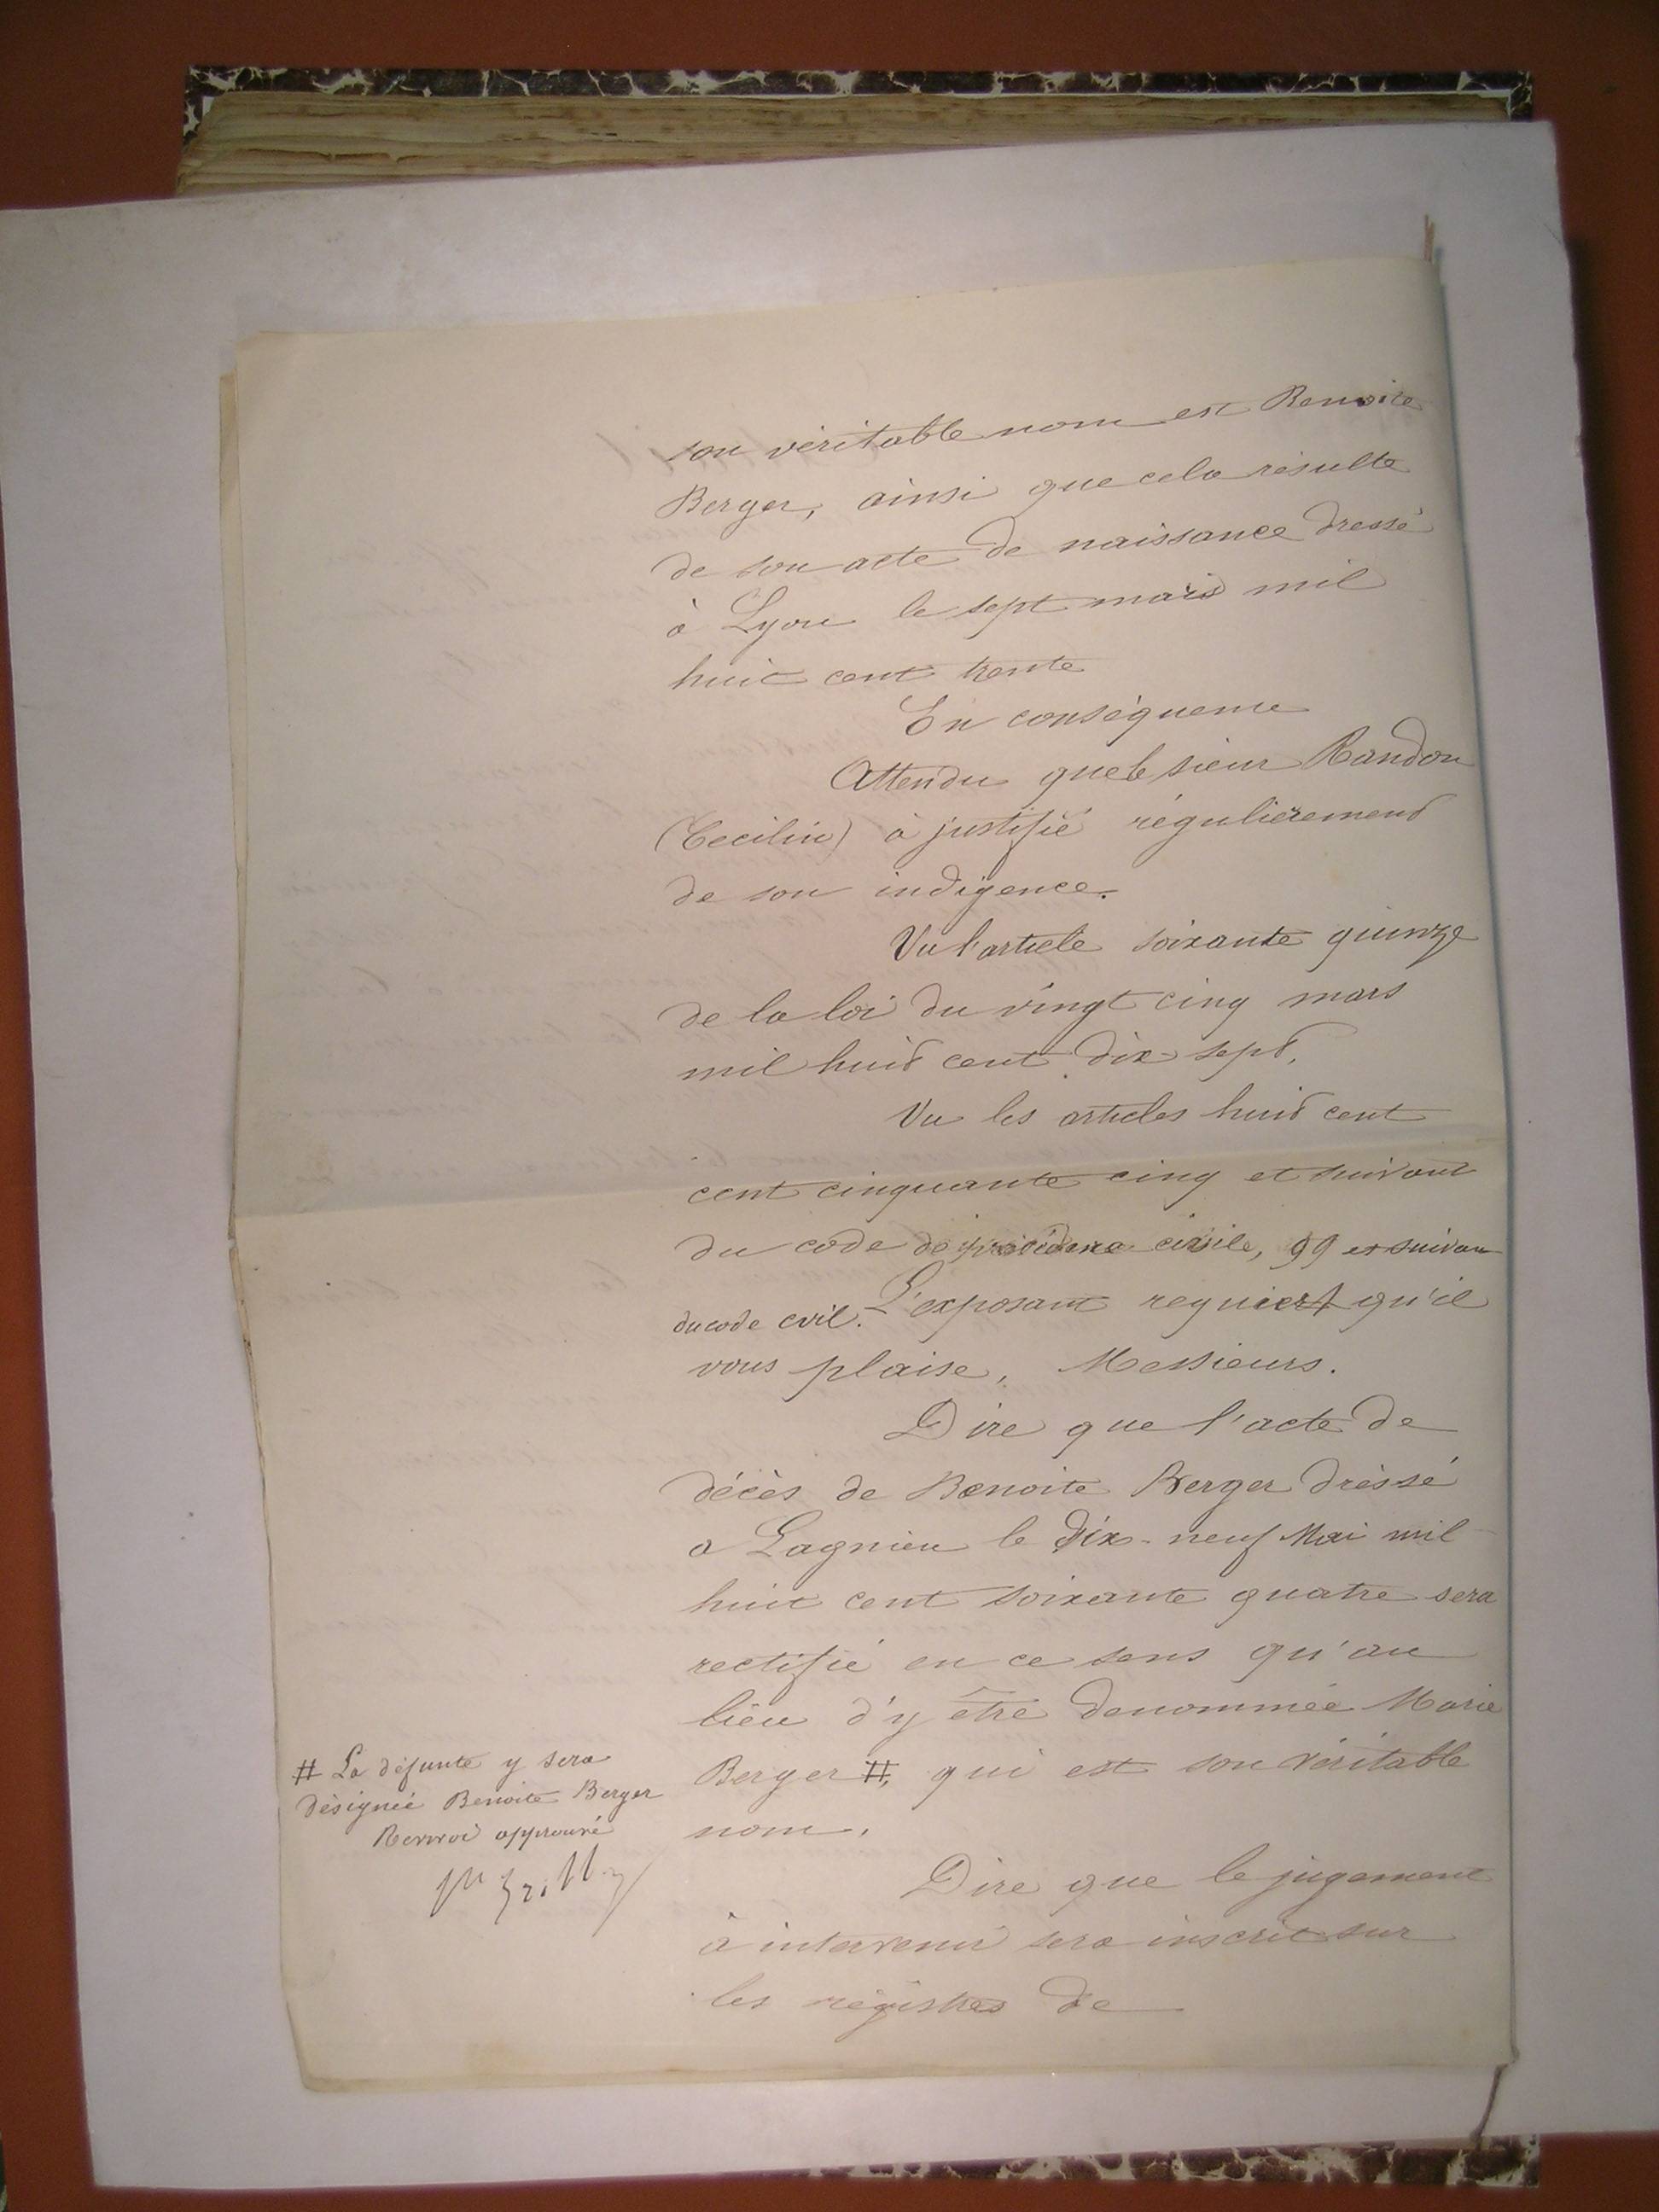 son véritable nom est Benoite
Berger, ainsi que cela résulte
de son acte de naissance dressé
à Lyon le sept mars mil
huit cent trente
En conséquence
Attendu que le sieur Randon
(Cecilin) à justifié régulièrement
de son indigence.
Vu l'article soixante quinze
de la loi du vingt cinq mars
mil huit cent dix sept,
Vu les articles huit cent
cent cinquante cinq et suivant
du code de procédure civile, 99 et suivan
du code civil. L'exposant requiert qu'il
vous plaise, Messieurs.
Dire que l'acte de
décès de Benoite Berger dressé
a Lagnieu le dix-neuf Mai mil
huit cent soixante quatre sera
rectifié en ce sens qu'au
lieu d'y être dénommée Marie
Berger #, qui est son véritable
nom.
# La défunte y sera
désignée Benoite Berger
Renvoi approuvé
Dire que le jugement
à intervenir sera inscrit sur
les régistres de